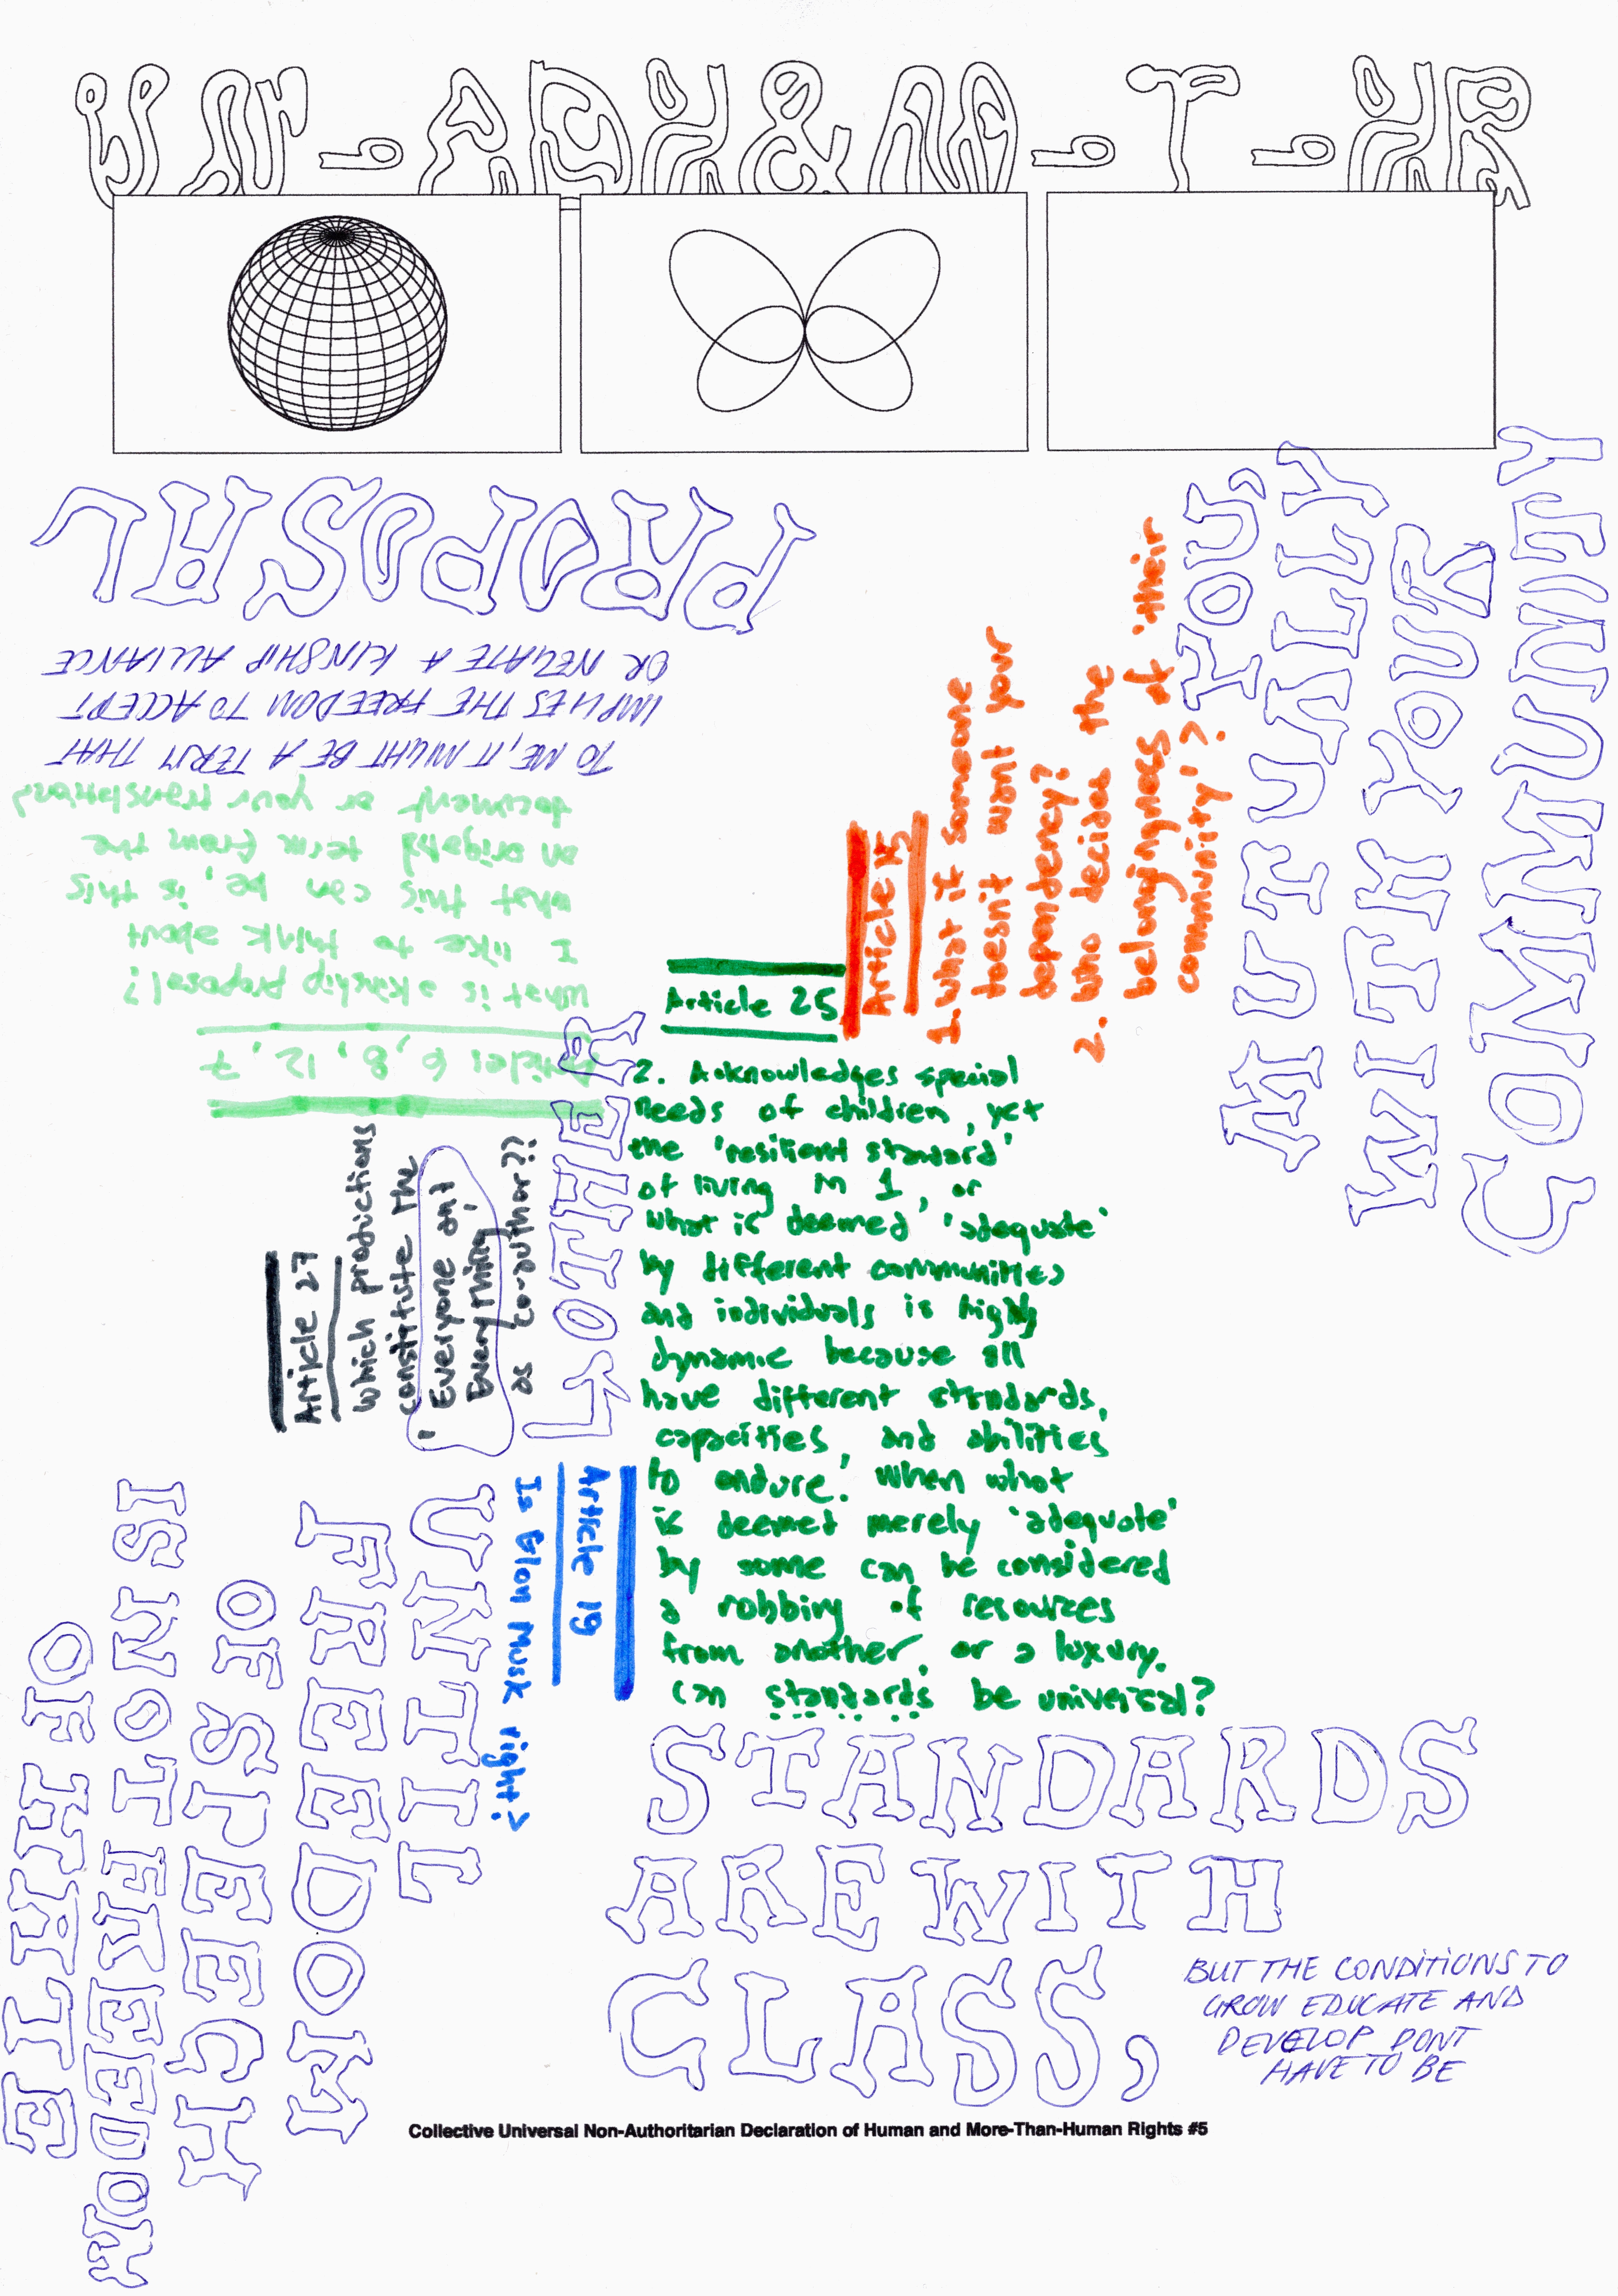 UN-ADH&M-T-HR
Articles 6, 8, 12, 7
What is a kinship proposal?
I like to think about
what this can be, is this
an original term from the
document or your translation?
TO ME, IT MIGHT BE A TERM THAT
IMPLIES THE FREEDOM TO ACCEPT
OR NEGATE A KINSHIP ALLIANCE
PROPOSAL
Article 15
1. What if someone
doesn't want your
dependency?
2. Who decides the
belongingness of 'their
community'?
YOU,
MUTUALLY
WITH YOUR
COMMUNITY
Article 25
2. Acknowledges special
needs of children, yet
the 'resilient standard'
of living in 1, or
what is deemed 'adequate'
by different communities
and individuals is highly
dynamic because all
have different standards,
capacities, and abilities
to endure. When what
is deemed merely 'adequate'
by some can be considered
a robbing of resources
from another, or a luxury.
can standards be universal?
STANDARDS
ARE WITH
CLASS,
BUT THE CONDITIONS TO
GROW EDUCATE AND
DEVELOP DONT
HAVE TO BE
Article 27
Which productions
constitute the
'Everyone and
Everything'
as co-author??
OTHER
Article 19
Is Elon Musk right?
UNTIL
FREEDOM
OF SPEECH
IS NOT FREEDOM
OF HATE
Collective Universal Non-Authoritarian Declaration of Human and More-Than-Human Rights #5